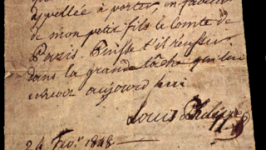 appellée à porter en faveur
de mon petit fils le comte de
Paris. Puisse t'il réussir
dans la grande tâche qui lui
échoit aujourd'hui
Louis Philippe
24 Fev. 1848